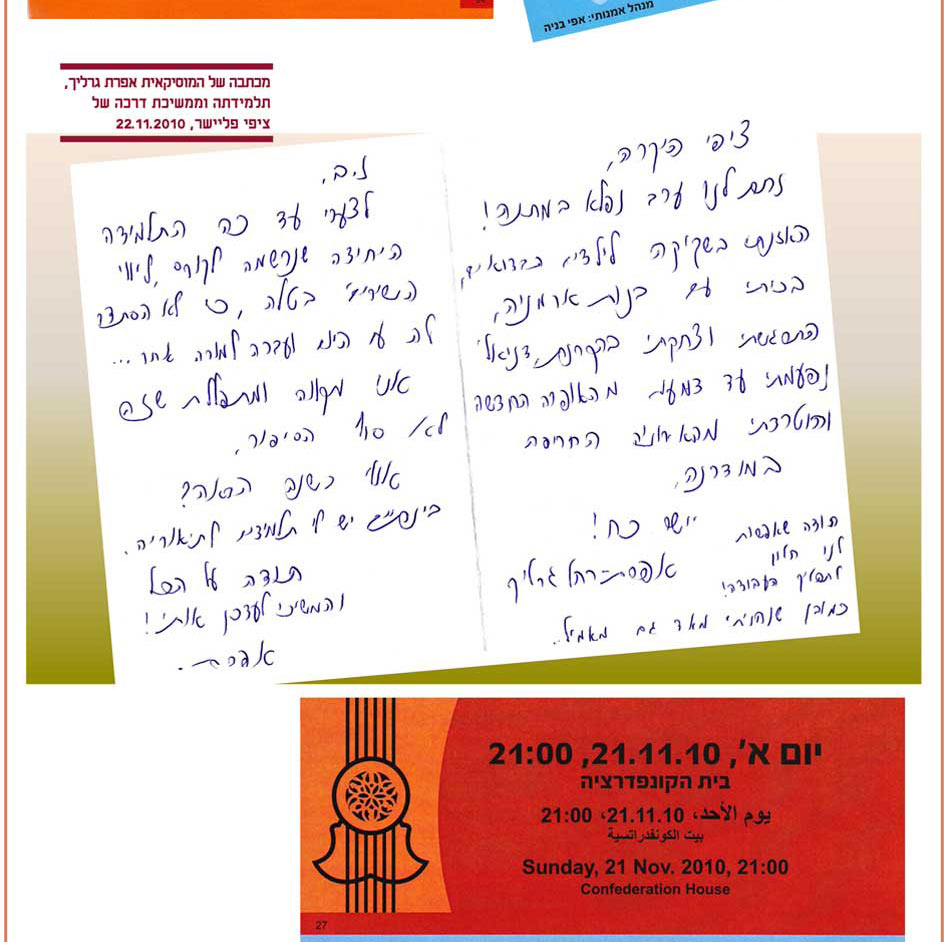 מנהל אמנותי: אפי בניה
מכתבה של המוסיקאית אפרת גרליך,
תלמידתה וממשיכת דרכה של
ציפי פליישר, 22.11.2010
ציפי היקרה,
נתת לנו ערב נפלא במתנה!
האזנתי בשקיקה לילדים הבדואים,
בכיתי עם בנות ארמניה,
התרגשתי וצחקתי
נפעמתי עד דמעות מהאופרה החדשה
והוטרדתי מהאירוניה החריפה
במודרנה,
יישר כח!
אפרת-רחל גרליך
תודה שאפשרת
לנו
להעבודה!
כמובן שנהניתי מאד גם מאמיל..
נ.ב.
לצערי עד כה התלמידה
היחידה שנרשמה לקורס 'ליווי
השירים' בטלה, כי לא הסתדר
לה עם היום ועברה למורה אחר...
אני מקווה ומתפללת שזה
לא סוף הסיפור,
אולי בשנה הבאה?
בינתיים יש לי תלמידים לתיאוריה.
תודה על הכל
והמשיכי לעדכן אותי!
אפרת.
יום א', 21.11.10, 21:00
בית הקונפדרציה
يوم الأحد، 21.11.10، 21:00
بيت الكونفدراتسية
Sunday, 21 Nov. 2010, 21:00
Confederation House
27